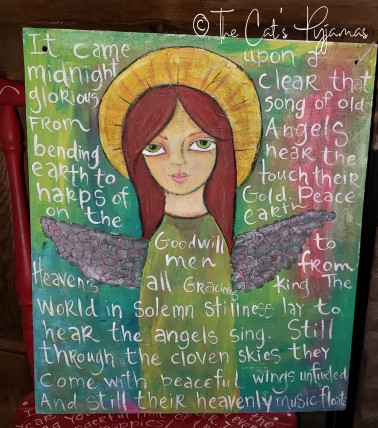 © The Cat's Pyjamas
It came upon a
midnight clear that
glorious song of old
From Angels
bending near the
earth to touch their
harps of Gold. Peace
on the earth
Goodwill to
men from
Heaven's all Gracious king The
World in Solemn Stillness lay to
hear the angels sing. Still
through the cloven skies they
Come with peaceful wings unfurled
And still their heavenly music floats